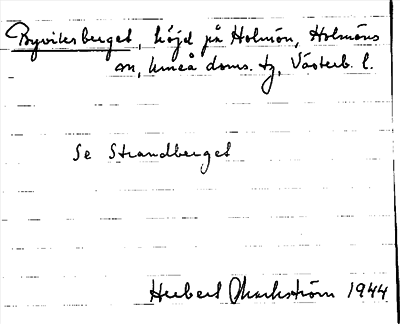 Byviksberget, höjd på Holmön, Holmöns
sn, Umeå doms. tg, Västerb. l.
Se Strandberget
Herbert Markström 1944